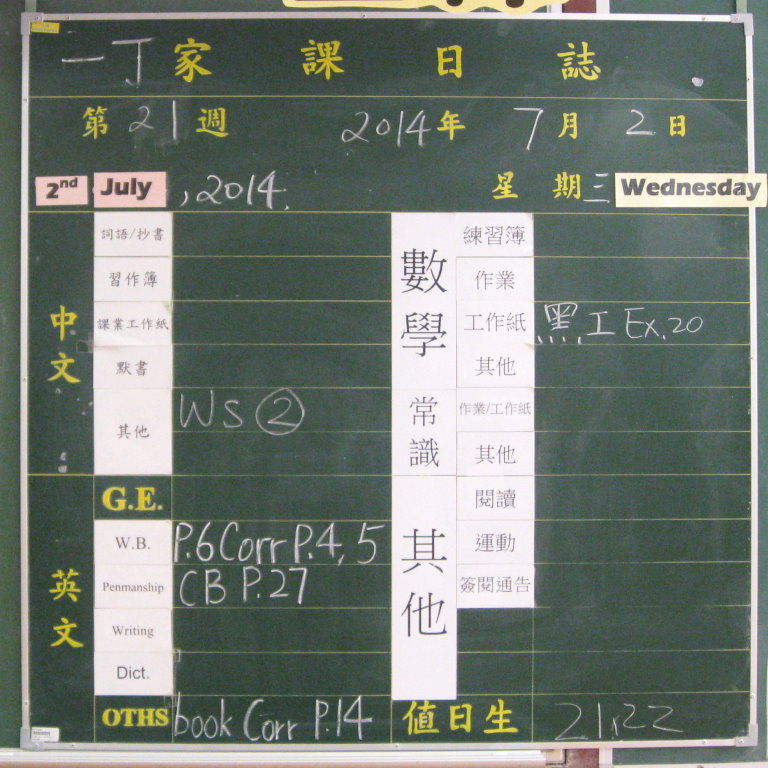 一丁家課日誌
第21週 2014年7月2日
2nd July, 2014. 星期三 Wednesday
中文
詞語/抄書
習作簿
課業工作紙
默書
其他 WS ②
英文
G.E.
W.B. P.6 Corr P.4, 5
Penmanship CB P.27
Writing
Dict.
OTHS book Corr P.14
數學
練習簿
作業
工作紙 黑工 Ex.20
其他
常識
作業/工作紙
其他
其他
閱讀
運動
簽閱通告
值日生 21,22